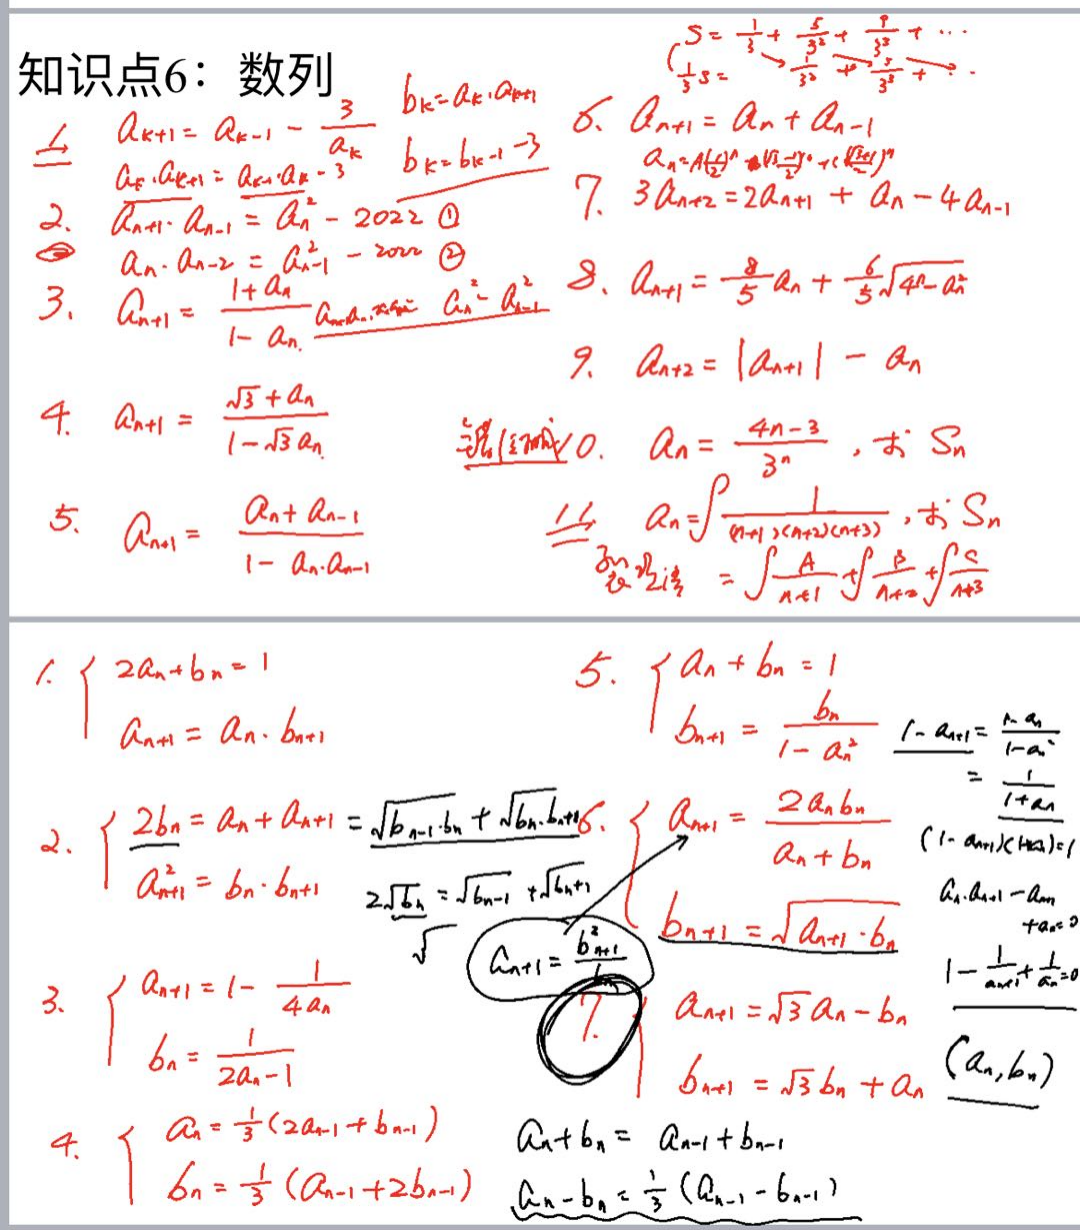 知识点6：数列
S = 1/3 + 5/3² + 9/3³ + ...
1/3 S = 1/3² + 5/3³ + ...
1. a_{k+1} = a_{k-1} - 3/a_k
b_k = a_k · a_{k+1}
a_k · a_{k+1} = a_{k-1} · a_k - 3
b_k = b_{k-1} - 3
2. a_{n+1} · a_{n-1} = a_n² - 2022 ①
a_n · a_{n-2} = a_{n-1}² - 2022 ②
a_n² - a_{n-1}²
3. a_{n+1} = (1 + a_n)/(1 - a_n)
4. a_{n+1} = (√3 + a_n)/(1 - √3 a_n)
5. a_{n+1} = (a_n + a_{n-1})/(1 - a_n · a_{n-1})
6. a_{n+1} = a_n + a_{n-1}
7. 3a_{n+2} = 2a_{n+1} + a_n - 4a_{n-1}
8. a_{n+1} = 8/5 a_n + 6/5 √(4ⁿ - a_n²)
9. a_{n+2} = |a_{n+1}| - a_n
10. a_n = (4n-3)/3ⁿ , 求 S_n
11. a_n = ∫ 1/((n+1)(n+2)(n+3)) , 求 S_n
= ∫ A/(n+1) + ∫ B/(n+2) + ∫ C/(n+3)
1. { 2a_n + b_n = 1
a_{n+1} = a_n · b_{n+1}
2. { 2b_n = a_n + a_{n+1} = √(b_{n-1} · b_n) + √(b_n · b_{n+1})
a_{n+1}² = b_n · b_{n+1}
2√b_n = √b_{n-1} + √b_{n+1}
√
3. { a_{n+1} = 1 - 1/(4a_n)
b_n = 1/(2a_n - 1)
4. { a_n = 1/3 (2a_{n-1} + b_{n-1})
b_n = 1/3 (a_{n-1} + 2b_{n-1})
a_n + b_n = a_{n-1} + b_{n-1}
a_n - b_n = 1/3 (a_{n-1} - b_{n-1})
5. { a_n + b_n = 1
b_{n+1} = b_n/(1 - a_n²)
1 - a_{n+1} = (1 - a_n)/(1 - a_n²)
= 1/(1 + a_n)
(1 - a_{n+1})(1 + a_n) = 1
a_n · a_{n+1} - a_{n+1}
+ a_n = 0
1 - 1/a_{n+1} + 1/a_n = 0
6. { a_{n+1} = 2a_n b_n/(a_n + b_n)
b_{n+1} = √(a_{n+1} · b_n)
a_{n+1} = b_{n+1}²/b_n
7. { a_{n+1} = √3 a_n - b_n
b_{n+1} = √3 b_n + a_n
(a_n, b_n)